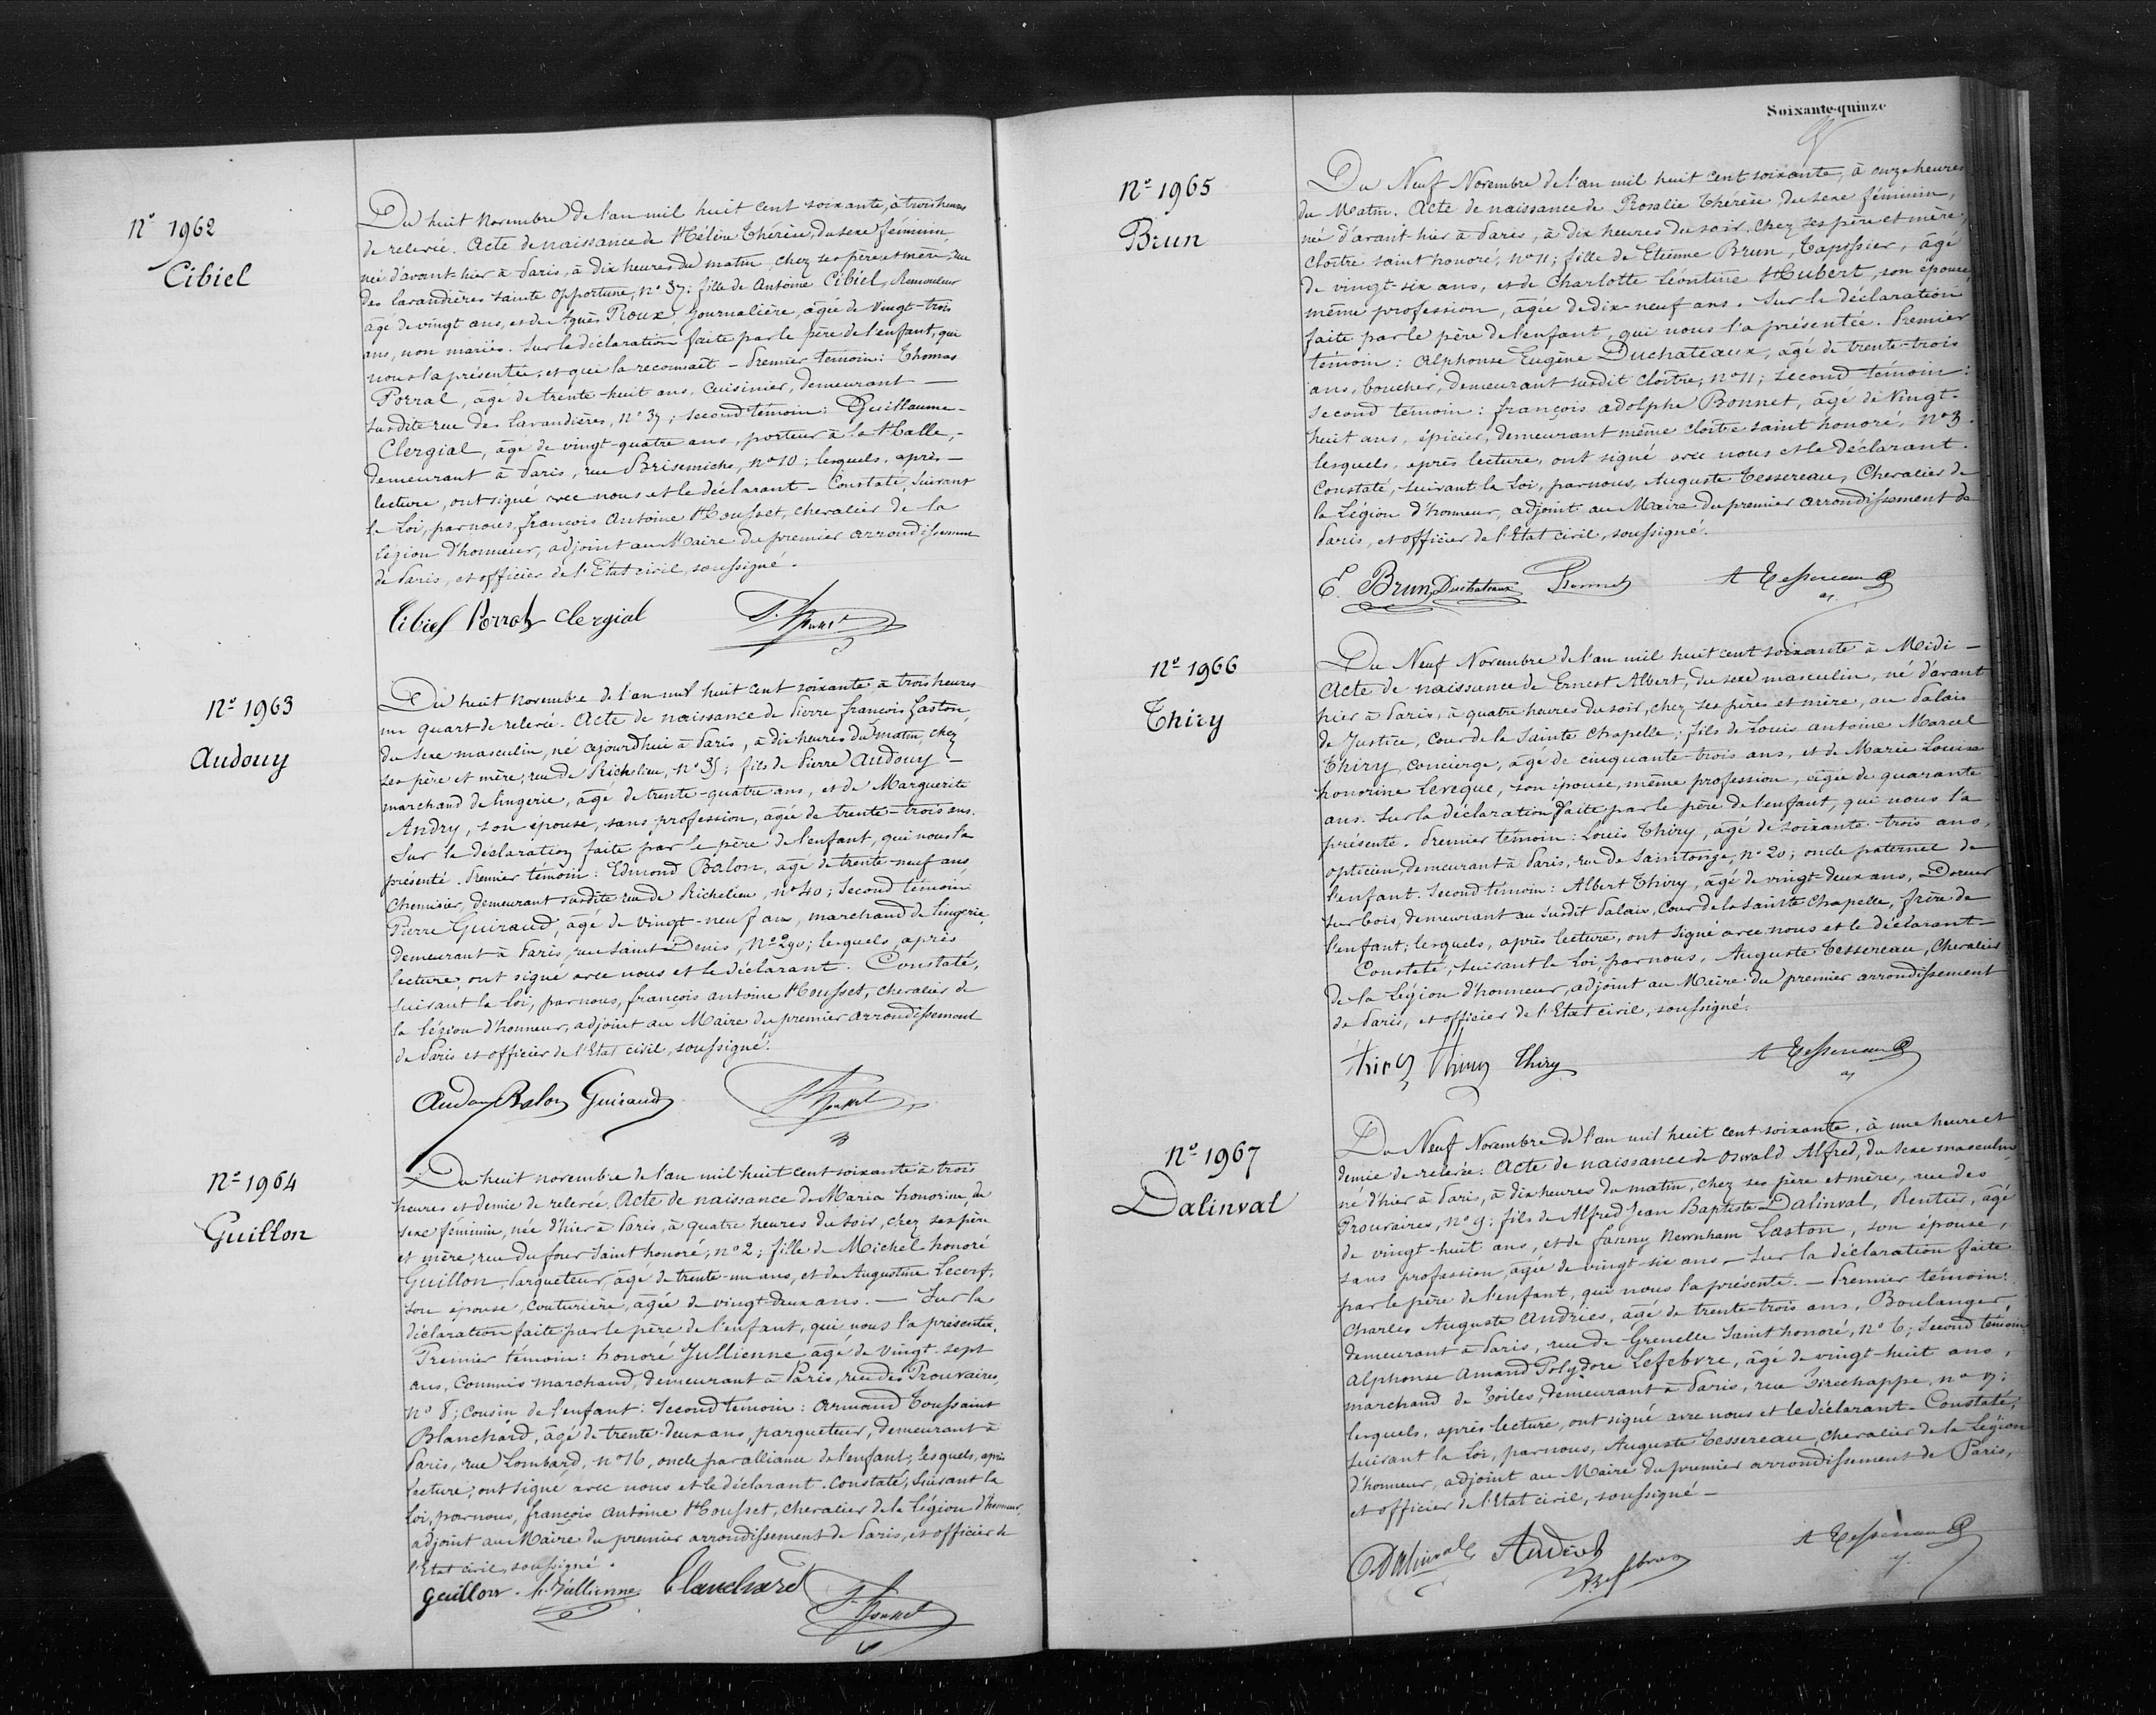 N° 1962
Cibiel
Du huit Novembre de l'an mil huit cent soixante, à trois heures
de relevée. Acte de naissance de Hélène Thérèse, du sexe féminin,
née d'avant-hier à Paris, à dix heures du matin, chez ses père et mère, rue
des Lavandières Sainte Opportune, n° 37; fille de Antoine Cibiel, Remouleur
âgé de vingt ans, et de Agnès Roux, journalière, âgée de vingt-trois
ans, non mariés. Sur la déclaration faite par le père de l'enfant, qui
nous l'a présentée, et qui la reconnaît – Premier témoin: Thomas
Porral, âgé de trente-huit ans, cuisinier, demeurant –
susdite rue des Lavandières, n° 37; second témoin: Guillaume-
Clergial, âgé de vingt-quatre ans, porteur à la Halle,-
demeurant à Paris, rue Brisemiche, n° 10; lesquels, après –
lecture, ont signé avec nous et le déclarant – Constaté, suivant
la Loi, par nous, françois Antoine Housset, chevalier de la
légion d'honneur, adjoint au Maire du premier arrondissement
de Paris, et officier de l'Etat civil, soussigné.
Cibiel Porral Clergial
N° 1963
Audouy
Du huit Novembre de l'an mil huit cent soixante à trois heures
un quart de relevée. Acte de naissance de Pierre françois Gaston,
du sexe masculin, né aujourdhui à Paris, à dix heures du matin, chez
ses père et mère, rue de Richelieu, n° 35; fils de Pierre Audouy –
marchand de lingerie, âgé de trente-quatre ans, et de Marguerite
Andry, son épouse, sans profession, âgée de trente-trois ans.
Sur la déclaration faite par le père de l'enfant, qui nous l'a
présenté. Premier témoin: Edmond Balon, âgé de trente-neuf ans
Chemisier, demeurant susdite rue de Richelieu, n° 40; Second témoin
Pierre Guiraud, âgé de vingt-neuf ans, marchand de lingerie,
demeurant à Paris, rue Saint-Denis, N° 290; lesquels, après
lecture, ont signé avec nous et le déclarant. Constaté,
suivant la Loi, par nous, françois antoine Housset, chevalier de
la légion d'honneur, adjoint au Maire du premier arrondissement
de Paris et officier de l'Etat civil, soussigné.
Audouy Balon Guiraud
N° 1964
Guillon
Du huit novembre de l'an mil huit cent soixante à trois
heures et demie de relevée. Acte de naissance de Maria honorine, du
sexe féminin, née d'hier à Paris, à quatre heures du soir, chez ses père
et mère, rue du four Saint honoré, n° 2; fille de Michel honoré
Guillon, Parqueteur, âgé de trente-un ans, et de Augustine Lecerf,
son épouse, couturière, âgée de vingt-deux ans. – Sur la
déclaration faite par le père de l'enfant, qui nous l'a présentée.
Premier témoin: honoré Jullienne âgé de vingt-sept
ans, Commis marchand, demeurant à Paris, rue des Prouvaires,
n° 8; Cousin de l'enfant: Second témoin: Armand Toussaint
Blanchard, âgé de trente-deux ans, parqueteur, demeurant à
Paris, rue Lombard, n° 16, oncle par alliance de l'enfant; lesquels, après
lecture, ont signé avec nous et le déclarant. Constaté, Suivant la
Loi, par nous, françois Antoine Housset, Chevalier de la Légion d'honneur,
adjoint au Maire du premier arrondissement de Paris, et officier de
l'Etat civil, soussigné.
guillon. h. Jullienne Blanchard
Soixante-quinze
N° 1965
Brun
Du Neuf Novembre de l'an mil huit cent soixante, à onze heures
du Matin. Acte de naissance de Rosalie Thérèse du sexe féminin,
né d'avant-hier à Paris, à dix heures du soir, chez ses père et mère,
cloître saint honoré, n° 11; fille de Etienne Brun, Tapissier, âgé
de vingt-six ans, et de Charlotte Léontine Hubert, son épouse,
même profession, âgée de dix-neuf ans. Sur la déclaration
faite par le père de l'enfant, qui nous l'a présentée. Premier
témoin: Alphonse Eugène Duchateaux, âgé de trente-trois
ans, boucher, demeurant susdit cloître, n° 11; second témoin:
second témoin: françois adolphe Bonnet, âgé de Vingt-
huit ans, épicier, demeurant même cloître saint honoré, n° 3.
lesquels, après lecture, ont signé avec nous et le déclarant.
Constaté, suivant la Loi, par nous, Auguste Tessereau, Chevalier de
la Légion d'honneur, adjoint au Maire du premier arrondissement de
Paris, et officier de l'Etat civil, soussigné.
E. Brun Duchateaux Bonnet A Tessereau
N° 1966
Thiry
Du Neuf Novembre de l'an mil huit cent soixante à Midi –
Acte de naissance de Ernest Albert, du sexe masculin, né d'avant
hier à Paris, à quatre heures du soir, chez ses père et mère, au Palais
de Justice, Cour de la Sainte Chapelle; fils de Louis antoine Marcel
Thiry, concierge, âgé de cinquante-trois ans, et de Marie Louise
honorine Leveque, son épouse, même profession, âgée de quarante
ans. Sur la déclaration faite par le père de l'enfant, qui nous l'a
présenté. Premier témoin: Louis Thiry, âgé de soixante-trois ans,
opticien, demeurant à Paris, rue de Saintonge, n° 20; oncle paternel de
l'enfant. Second témoin: Albert Thiry, âgé de vingt-deux ans, Doreur
sur bois, demeurant au susdit Palais, Cour de la Sainte Chapelle, frère de
l'enfant; lesquels, après lecture, ont signé avec nous et le déclarant –
Constaté, suivant la Loi, par nous, Auguste Tessereau, Chevalier
de la Légion d'honneur, adjoint au Maire du premier arrondissement
de Paris, et officier de l'Etat civil, soussigné.
Thiry Thiry Thiry A Tessereau
N° 1967
Dalinval
Du Neuf Novembre de l'an mil huit cent soixante, à une heure et
demie de relevée. Acte de naissance de Oswald Alfred, du sexe masculin
né d'hier à Paris, à dix heures du matin, chez ses père et mère, rue des
Prouvaires, n° 9; fils de Alfred Jean Baptiste Dalinval, Rentier, âgé
de vingt-huit ans, et de fanny Newnham Laston, son épouse,
sans profession, âgée de vingt-six ans – Sur la déclaration faite
par le père de l'enfant, qui nous l'a présenté. – Premier témoin:
Charles Auguste Andries, âgé de trente-trois ans, Boulanger,
demeurant à Paris, rue de Grenelle Saint honoré, n° 6; Second témoin:
Alphonse Amand Polydore Lefebvre, âgé de vingt-huit ans,
marchand de Toiles, demeurant à Paris, rue Tirechappe, n° 17;
lesquels, après lecture, ont signé avec nous et le déclarant – Constaté,
suivant la Loi, par nous, Auguste Tessereau, chevalier de la Légion
d'honneur, adjoint au Maire du premier arrondissement de Paris,
et officier de l'Etat civil, soussigné –
Dalinval Andries A Tessereau
Lefebvre